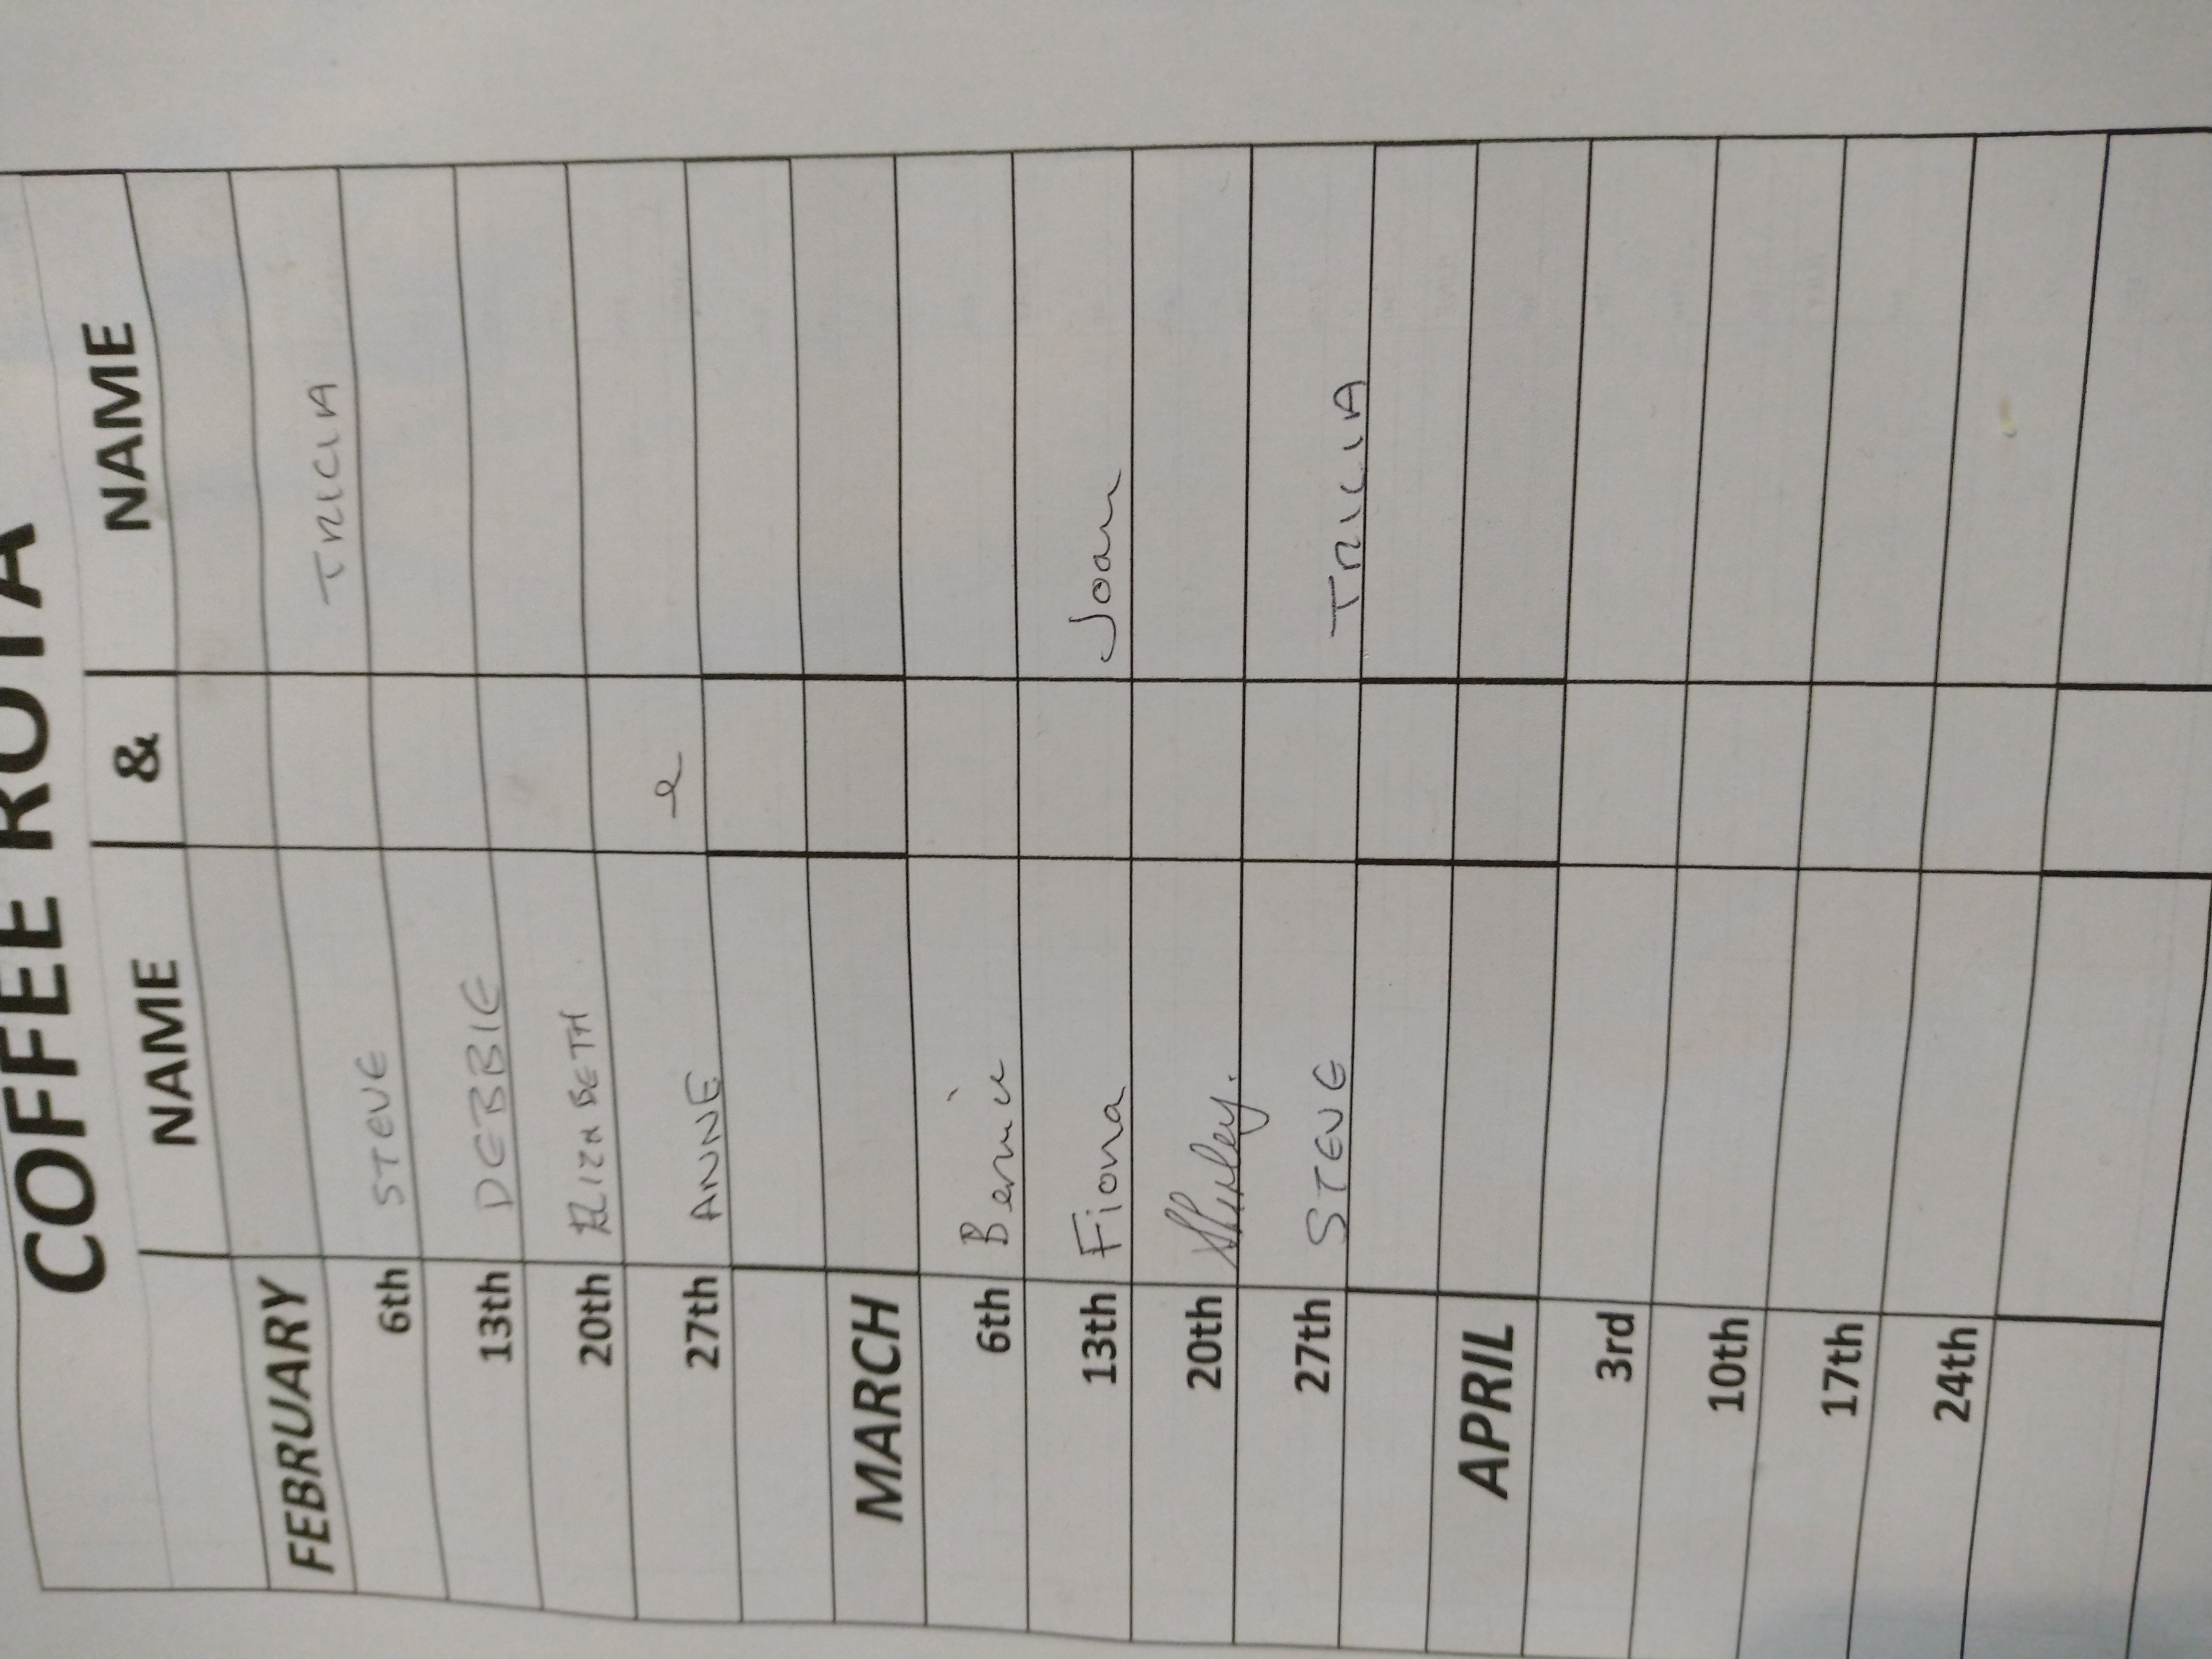 COFFEE ROTA
NAME & NAME
FEBRUARY
6th STEVE TRICIA
13th DEBBIE
20th ELIZABETH
27th ANNE
MARCH
6th Bernie
13th Fiona Joan
20th Shirley.
27th STEVE TRICIA
APRIL
3rd
10th
17th
24th